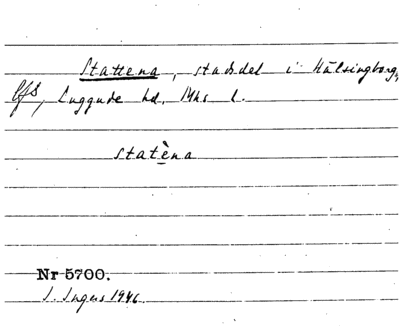 Stattena, stadsdel i Hälsingborg,
lfs, Luggude hd, Mhs l.
statèna
Nr 5700.
S. Ingers 1946.